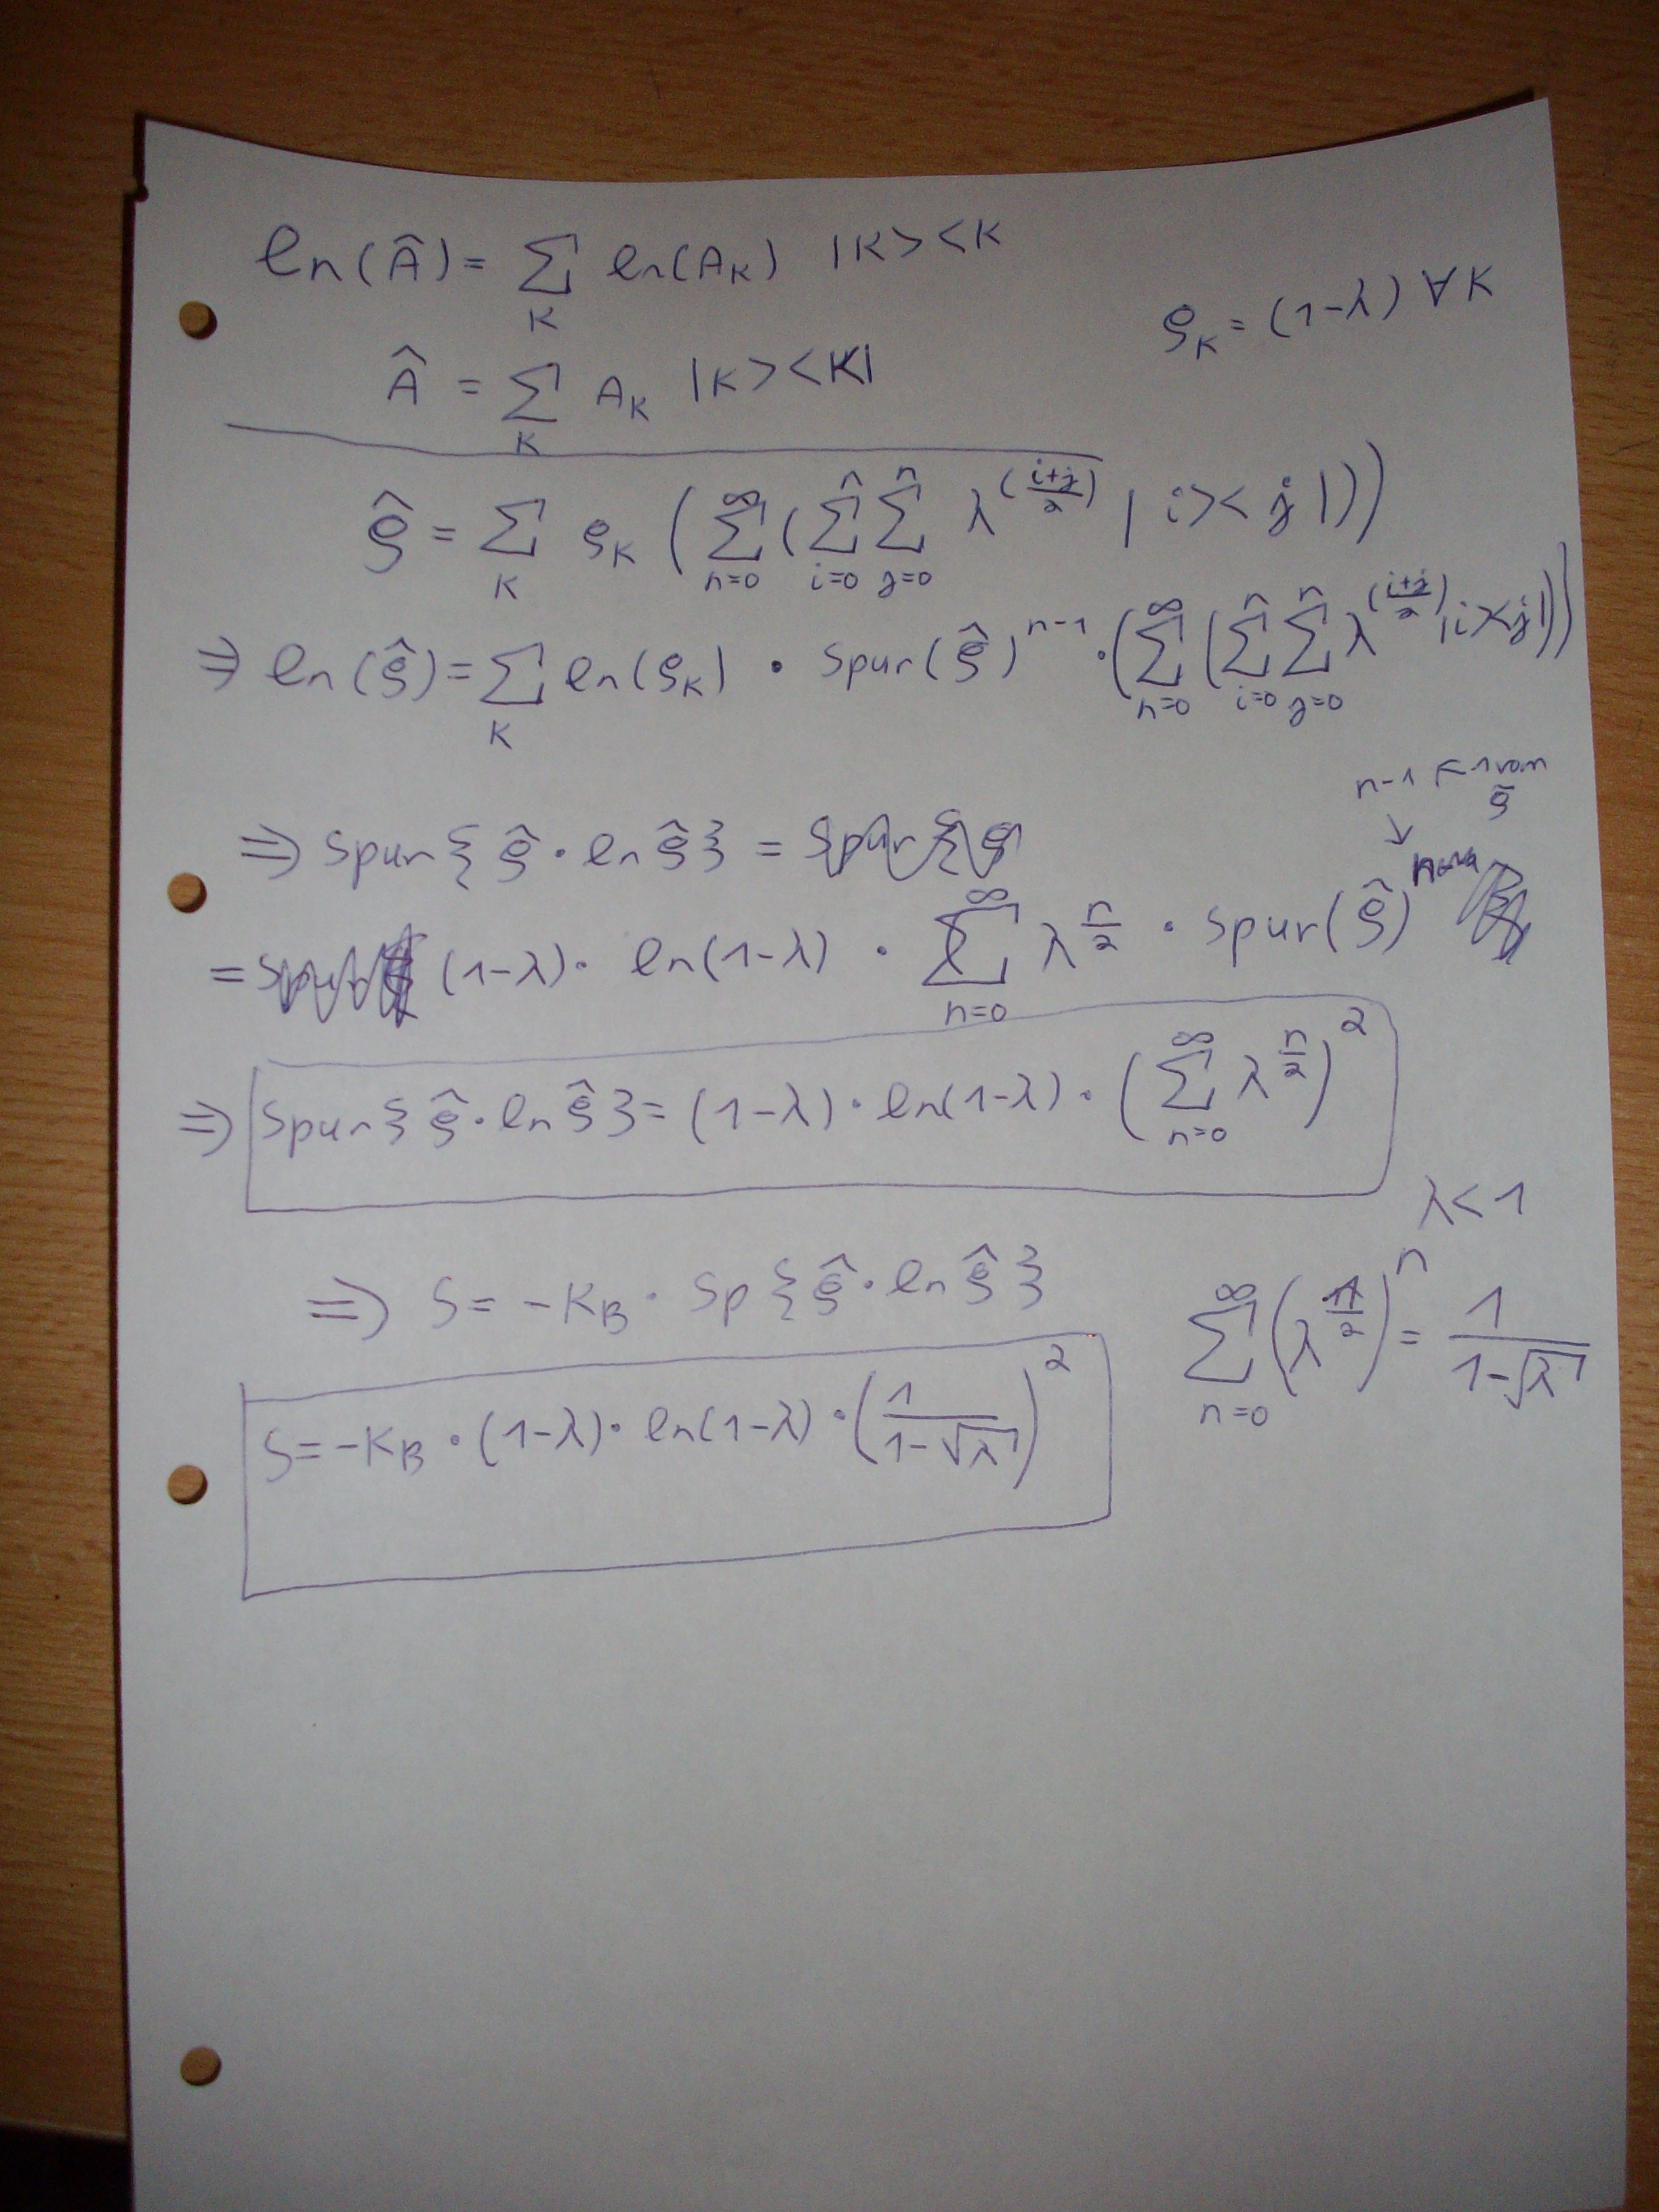 ln(Â) = ∑_K ln(A_K) |K><K
ρ_K = (1-λ) ∀ K
Â = ∑_K A_K |K><K|
ρ̂ = ∑_K ρ_K (∑_{n=0}^∞ (∑_{i=0}^n ∑_{j=0}^n λ^{(\frac{i+j}{2})} |i><j|))
⇒ ln(ρ̂) = ∑_K ln(ρ_K) · Spur(ρ̂)^{n-1} · (∑_{n=0}^∞ (∑_{i=0}^n ∑_{j=0}^n λ^{(\frac{i+j}{2})} |i><j|))
n-1 von ρ̂
⇒ Spur{ρ̂ · ln ρ̂} =
= (1-λ) · ln(1-λ) · ∑_{n=0}^∞ λ^{\frac{n}{2}} · Spur(ρ̂)
⇒ Spur{ρ̂ · ln ρ̂} = (1-λ) · ln(1-λ) · (∑_{n=0}^∞ λ^{\frac{n}{2}})^2
λ < 1
⇒ S = -K_B · Sp{ρ̂ · ln ρ̂}
∑_{n=0}^∞ (λ^{\frac{1}{2}})^n = \frac{1}{1-√λ}
S = -K_B · (1-λ) · ln(1-λ) · (\frac{1}{1-√λ})^2